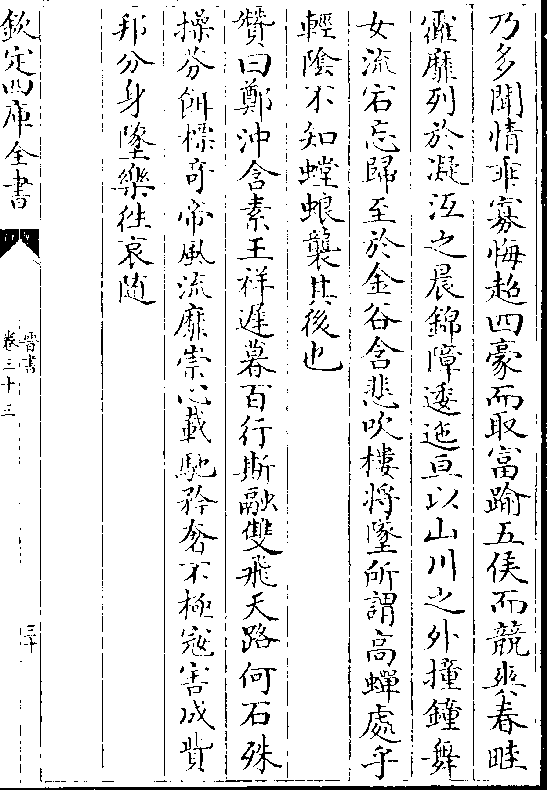 乃多聞情乖寡悔超四豪而取富踰五侯而競爽春畦
靃靡列於凝沍之晨錦障逶迤亘以山川之外撞鐘舞
女流宕忘歸至於金谷含悲吹樓將墜所謂高蟬處乎
輕陰不知螳蜋襲其後也
贊曰鄭沖含素王祥遲暮百行斯融雙飛天路何石殊
操芬餌標奇帝風流靡崇心載馳矜奢不極寇害成貲
邦分身墜樂往哀随
欽定四庫全書
晉書
卷三十三
三十